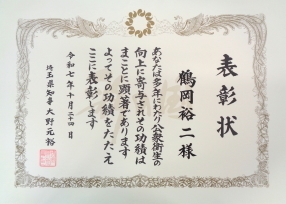 表彰状
鶴岡裕二様
あなたは多年にわたり公衆衛生の
向上に寄与されその功績は
まことに顕著であります
よってその功績をたたえ
ここに表彰します
令和七年十月二十四日
埼玉県知事 大野元裕